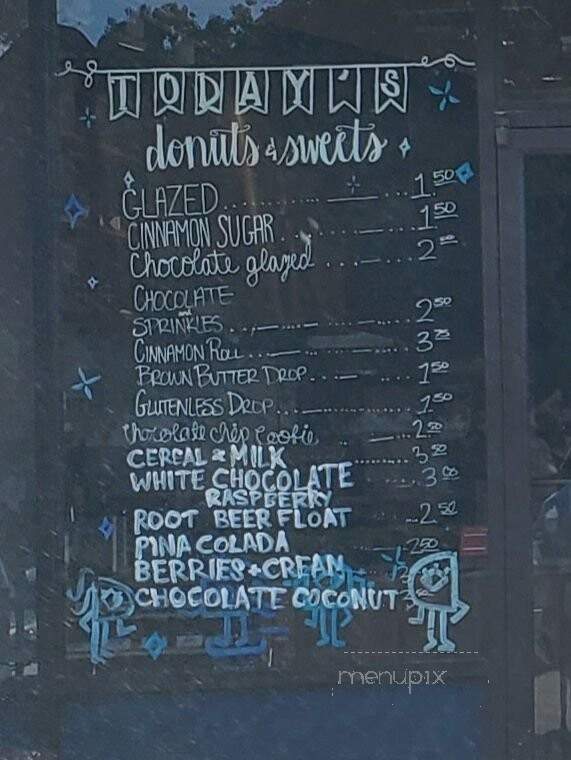 TODAY'S
donuts & sweets
GLAZED 1.50
CINNAMON SUGAR 1.50
Chocolate glazed 2
CHOCOLATE
and
SPRINKLES 2.50
CINNAMON ROLL 3.75
BROWN BUTTER DROP 1.50
GLUTENLESS DROP 1.50
chocolate chip cookie 2.50
CEREAL & MILK 3.50
WHITE CHOCOLATE 3.00
RASPBERRY
ROOT BEER FLOAT 2.50
PINA COLADA 2.50
BERRIES + CREAM
CHOCOLATE COCONUT
menupix